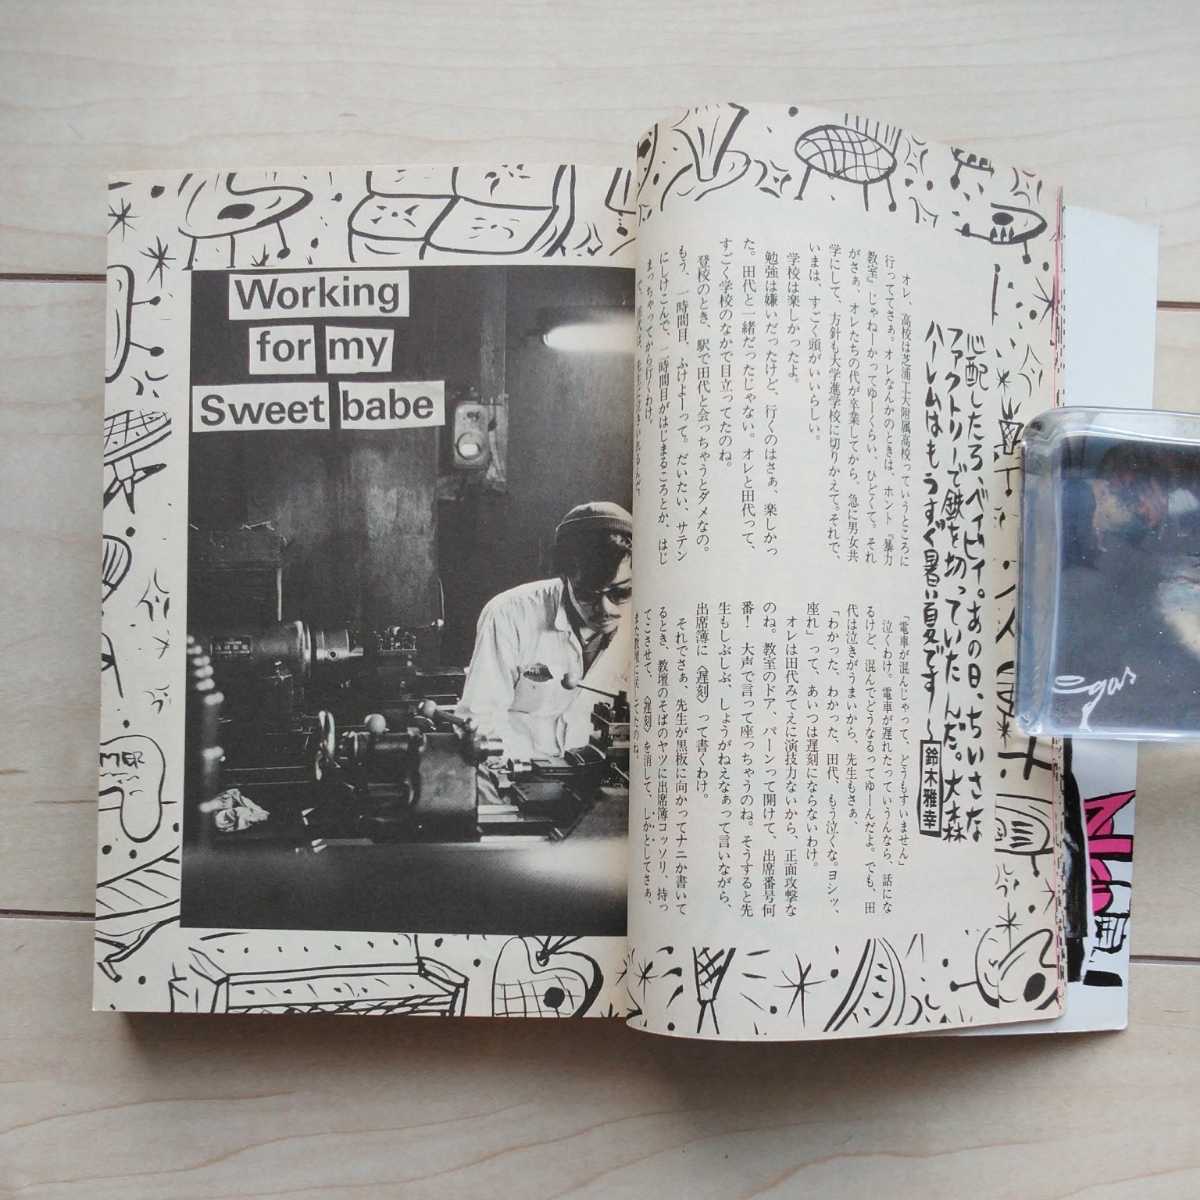 Working
for my
Sweet babe
心配したろ、ベイビイ。あの日、ちいさな
ファクトリーで鉄を切っていたんだ。大森
ハーレムはもうすぐ暑い夏です〜
鈴木雅幸
オレ、高校は芝浦工大附属高校っていうところに
行っててさぁ。オレなんかのときは、ホント『暴力
教室』じゃねーかってゆーくらい、ひどくて。それ
がさぁ、オレたちの代が卒業してから、急に男女共
学にして、方針も大学進学校に切りかえて。それで、
いまは、すごく頭がいいらしい。
学校は楽しかったよ。
勉強は嫌いだったけど、行くのはさぁ、楽しかっ
た。田代と一緒だったじゃない。オレと田代って、
すごく学校のなかで目立ってたのね。
登校のとき、駅で田代と会っちゃうとダメなの。
もう、一時間目、ふけよーって。だいたい、サテン
にしけこんで、二時間目がはじまるころとか、はじ
まっちゃってから行くわけ。
「電車が混んじゃって、どうもすいません」
泣くわけ。電車が遅れたっていうんなら、話にな
るけど、混んでどうなるってゆーんだよ。でも、田
代は泣きがうまいから、先生もさぁ、
「わかった、わかった、田代、もう泣くな。ヨシッ、
座れ」って、あいつは遅刻にならないわけ。
オレは田代みてえに演技力ないから、正面攻撃な
のね。教室のドア、バーンって開けて、出席番号何
番！ 大声で言って座っちゃうのね。そうすると先
生もしぶしぶ、しょうがねえなぁって言いながら、
出席簿に〈遅刻〉って書くわけ。
それでさぁ、先生が黒板に向かってナニか書いて
るとき、教壇のそばのヤツに出席簿コッソリ、持っ
てこさせて、〈遅刻〉を消して、しかとしてさぁ、